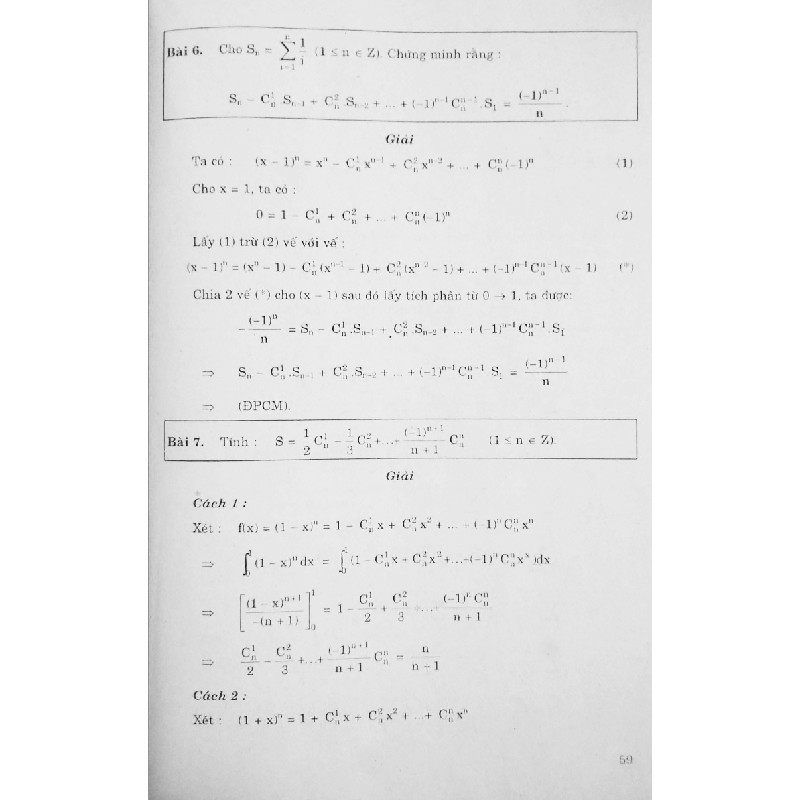 Bài 6. Cho Sₙ = ∑ⁿᵢ₌₁ 1/i (1 ≤ n ∈ Z). Chứng minh rằng :
Sₙ − C¹ₙ.Sₙ₋₁ + C²ₙ.Sₙ₋₂ + ... + (−1)ⁿ⁻¹Cₙⁿ⁻¹.S₁ = (−1)ⁿ⁻¹/n.
Giải
Ta có : (x − 1)ⁿ = xⁿ − C¹ₙxⁿ⁻¹ + C²ₙxⁿ⁻² + ... + Cⁿₙ(−1)ⁿ (1)
Cho x = 1, ta có :
0 = 1 − C¹ₙ + C²ₙ + ... + Cⁿₙ(−1)ⁿ (2)
Lấy (1) trừ (2) vế với vế :
(x − 1)ⁿ = (xⁿ − 1) − C¹ₙ(xⁿ⁻¹ − 1) + C²ₙ(xⁿ⁻² − 1) + ... + (−1)ⁿ⁻¹Cₙⁿ⁻¹(x − 1) (*)
Chia 2 vế (*) cho (x − 1) sau đó lấy tích phân từ 0 → 1, ta được:
−(−1)ⁿ/n = Sₙ − C¹ₙ.Sₙ₋₁ + C²ₙ.Sₙ₋₂ + ... + (−1)ⁿ⁻¹Cₙⁿ⁻¹.S₁
⇒ Sₙ − C¹ₙ.Sₙ₋₁ + C²ₙ.Sₙ₋₂ + ... + (−1)ⁿ⁻¹Cₙⁿ⁻¹ S₁ = (−1)ⁿ⁻¹/n
⇒ (ĐPCM).
Bài 7. Tính : S = 1/2 C¹ₙ − 1/3 C²ₙ +...+ (−1)ⁿ⁺¹/(n + 1) Cⁿₙ (1 ≤ n ∈ Z).
Giải
Cách 1 :
Xét : f(x) = (1 − x)ⁿ = 1 − C¹ₙx + C²ₙx² + ... + (−1)ⁿCⁿₙxⁿ
⇒ ∫₀¹(1 − x)ⁿdx = ∫₀¹(1 − C¹ₙx + C²ₙx² +...+(−1)ⁿCⁿₙxˣ)dx
⇒ [(1 − x)ⁿ⁺¹/−(n + 1)]₀¹ = 1 − C¹ₙ/2 + C²ₙ/3 +...+ (−1)ⁿCⁿₙ/(n + 1)
⇒ C¹ₙ/2 − C²ₙ/3 +...+ (−1)ⁿ⁺¹/(n + 1) Cⁿₙ = n/(n + 1)
Cách 2 :
Xét : (1 + x)ⁿ = 1 + C¹ₙx + C²ₙx² + ...+ Cⁿₙxⁿ
59